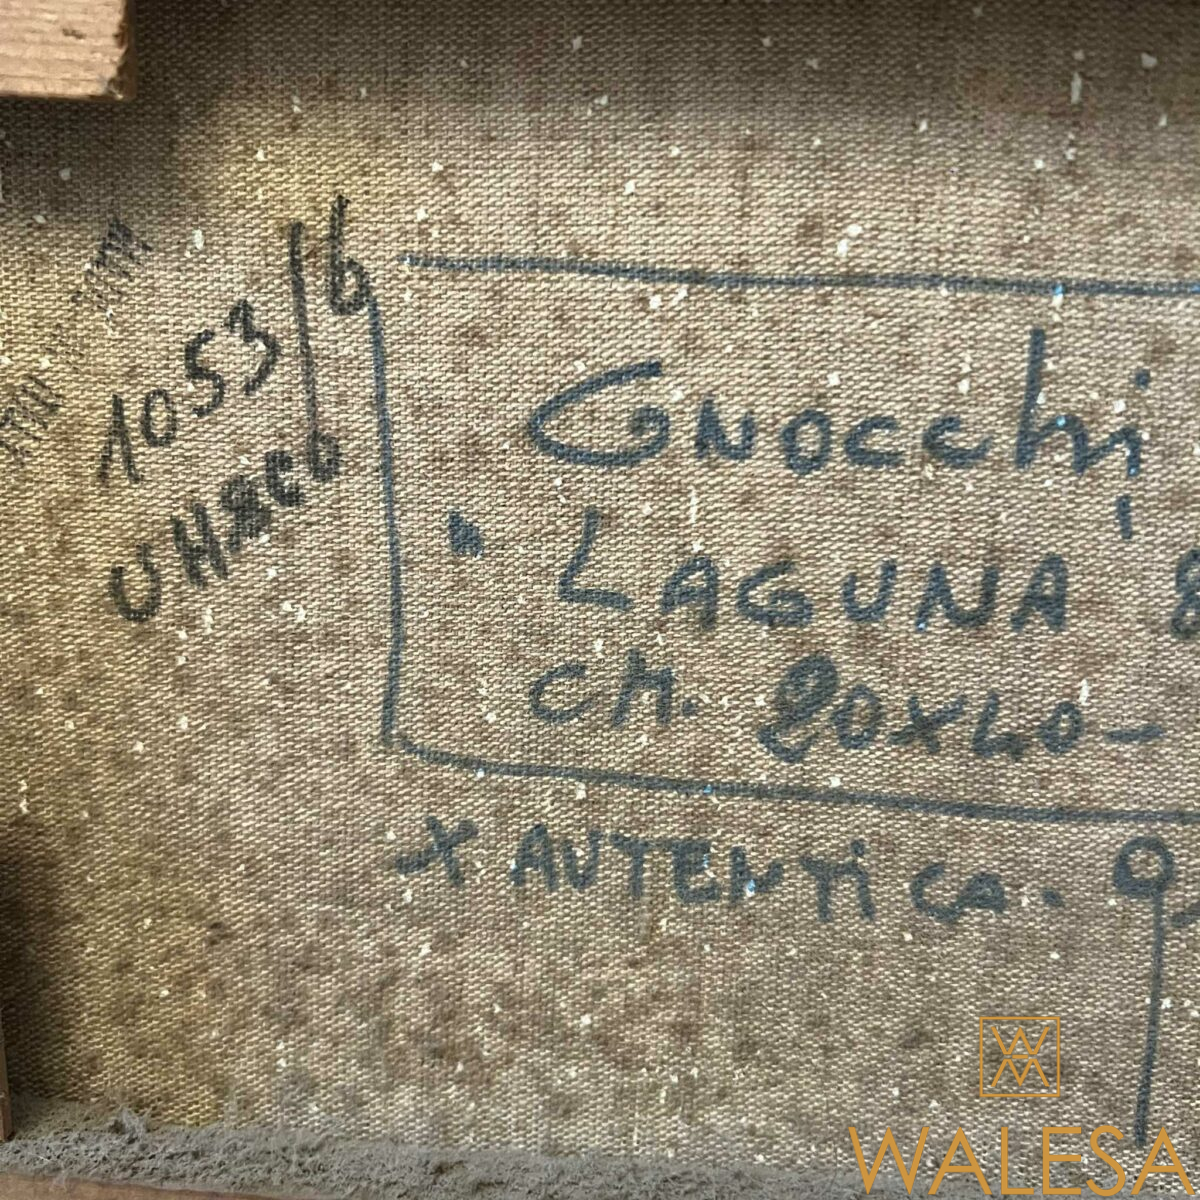 1053/b
Gnocchi
LAGUNA
CM. 20x40-
x AUTENTICA.
WALESA